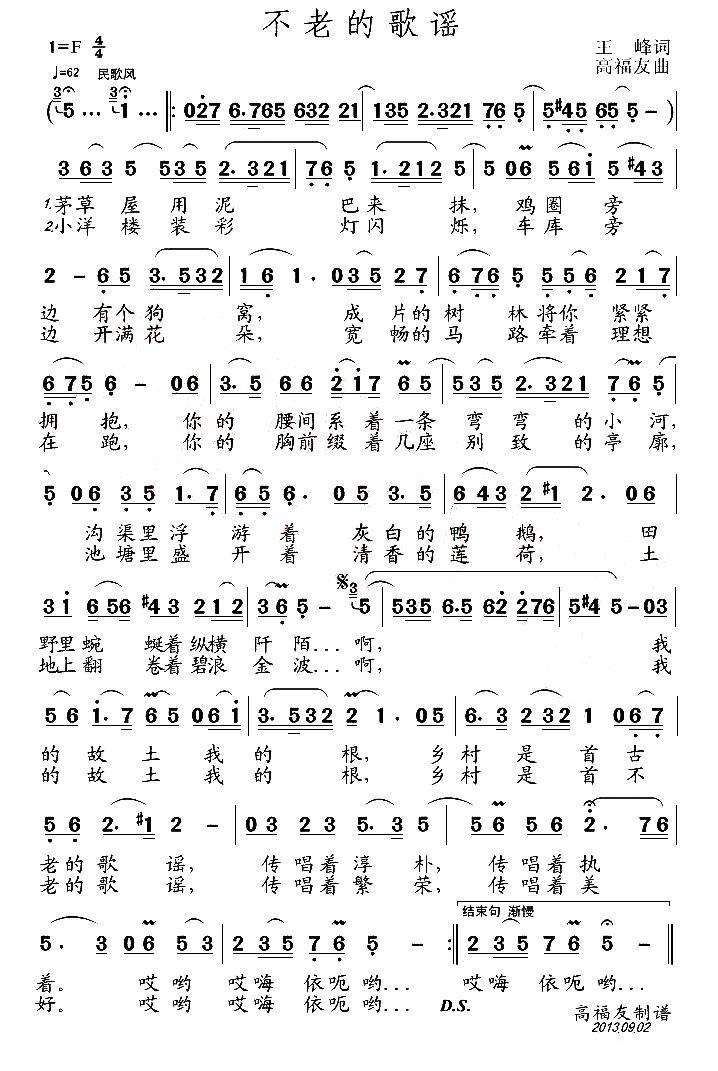 不老的歌谣
1=F 4/4
王 峰词
♩=62 民歌风
高福友曲
(5… i… ‖: 027 6.765 632 21 | 135 2.321 76 5 | 5#45 65 5 - )
3 6 3 5 535 2.321 | 76 5 1.212 5 | 5 06 56i 5 #43
1.茅草 屋 用泥 巴来 抹, 鸡圈 旁
2.小洋 楼 装彩 灯闪 烁, 车库 旁
2 - 6 5 3.532 | 1 6 1. 035 27 | 6 76 5 556 217
边 有个 狗 窝, 成 片的 树 林将你 紧紧
边 开满 花 朵, 宽 畅的 马 路牵着 理想
6 75 6 - 06 | 3.5 66 2i7 65 | 535 2.321 76 5
拥 抱, 你的 腰间系着一条 弯弯 的小河,
在 跑, 你的 胸前缀着几座 别致 的亭廓,
5 06 35 1.7 | 65 6. 05 3.5 | 643 2#1 2. 06
沟渠里浮 游着 灰白的鸭 鹅, 田
池塘里盛 开着 清香的莲 荷, 土
3i 656 #43 212 | 36 5 - 5 | 535 6.5 62 276 | 5#4 5-03
野里蜿 蜒着纵横 阡陌…啊, 我
地上翻 卷着碧浪 金波…啊, 我
56 i.7 65 06i | 3.532 2 1. 05 | 6.3 2 232 1 067
的故土我的 根, 乡村是首古
的故土我的 根, 乡村是首不
5 6 2. #1 2 - | 03 23 5.35 5 | 56 56 2. 76
老的歌 谣, 传唱着淳 朴, 传唱着执
老的歌 谣, 传唱着繁 荣, 传唱着美
结束句 渐慢
5. 3 06 535 | 235 76 5 - :‖ 235 76 5 - ‖
着。 哎哟 哎嗨 依呃哟… 哎嗨 依呃哟…
好。 哎哟 哎嗨 依呃 哟… D.S.
高福友制谱
2013.09.02